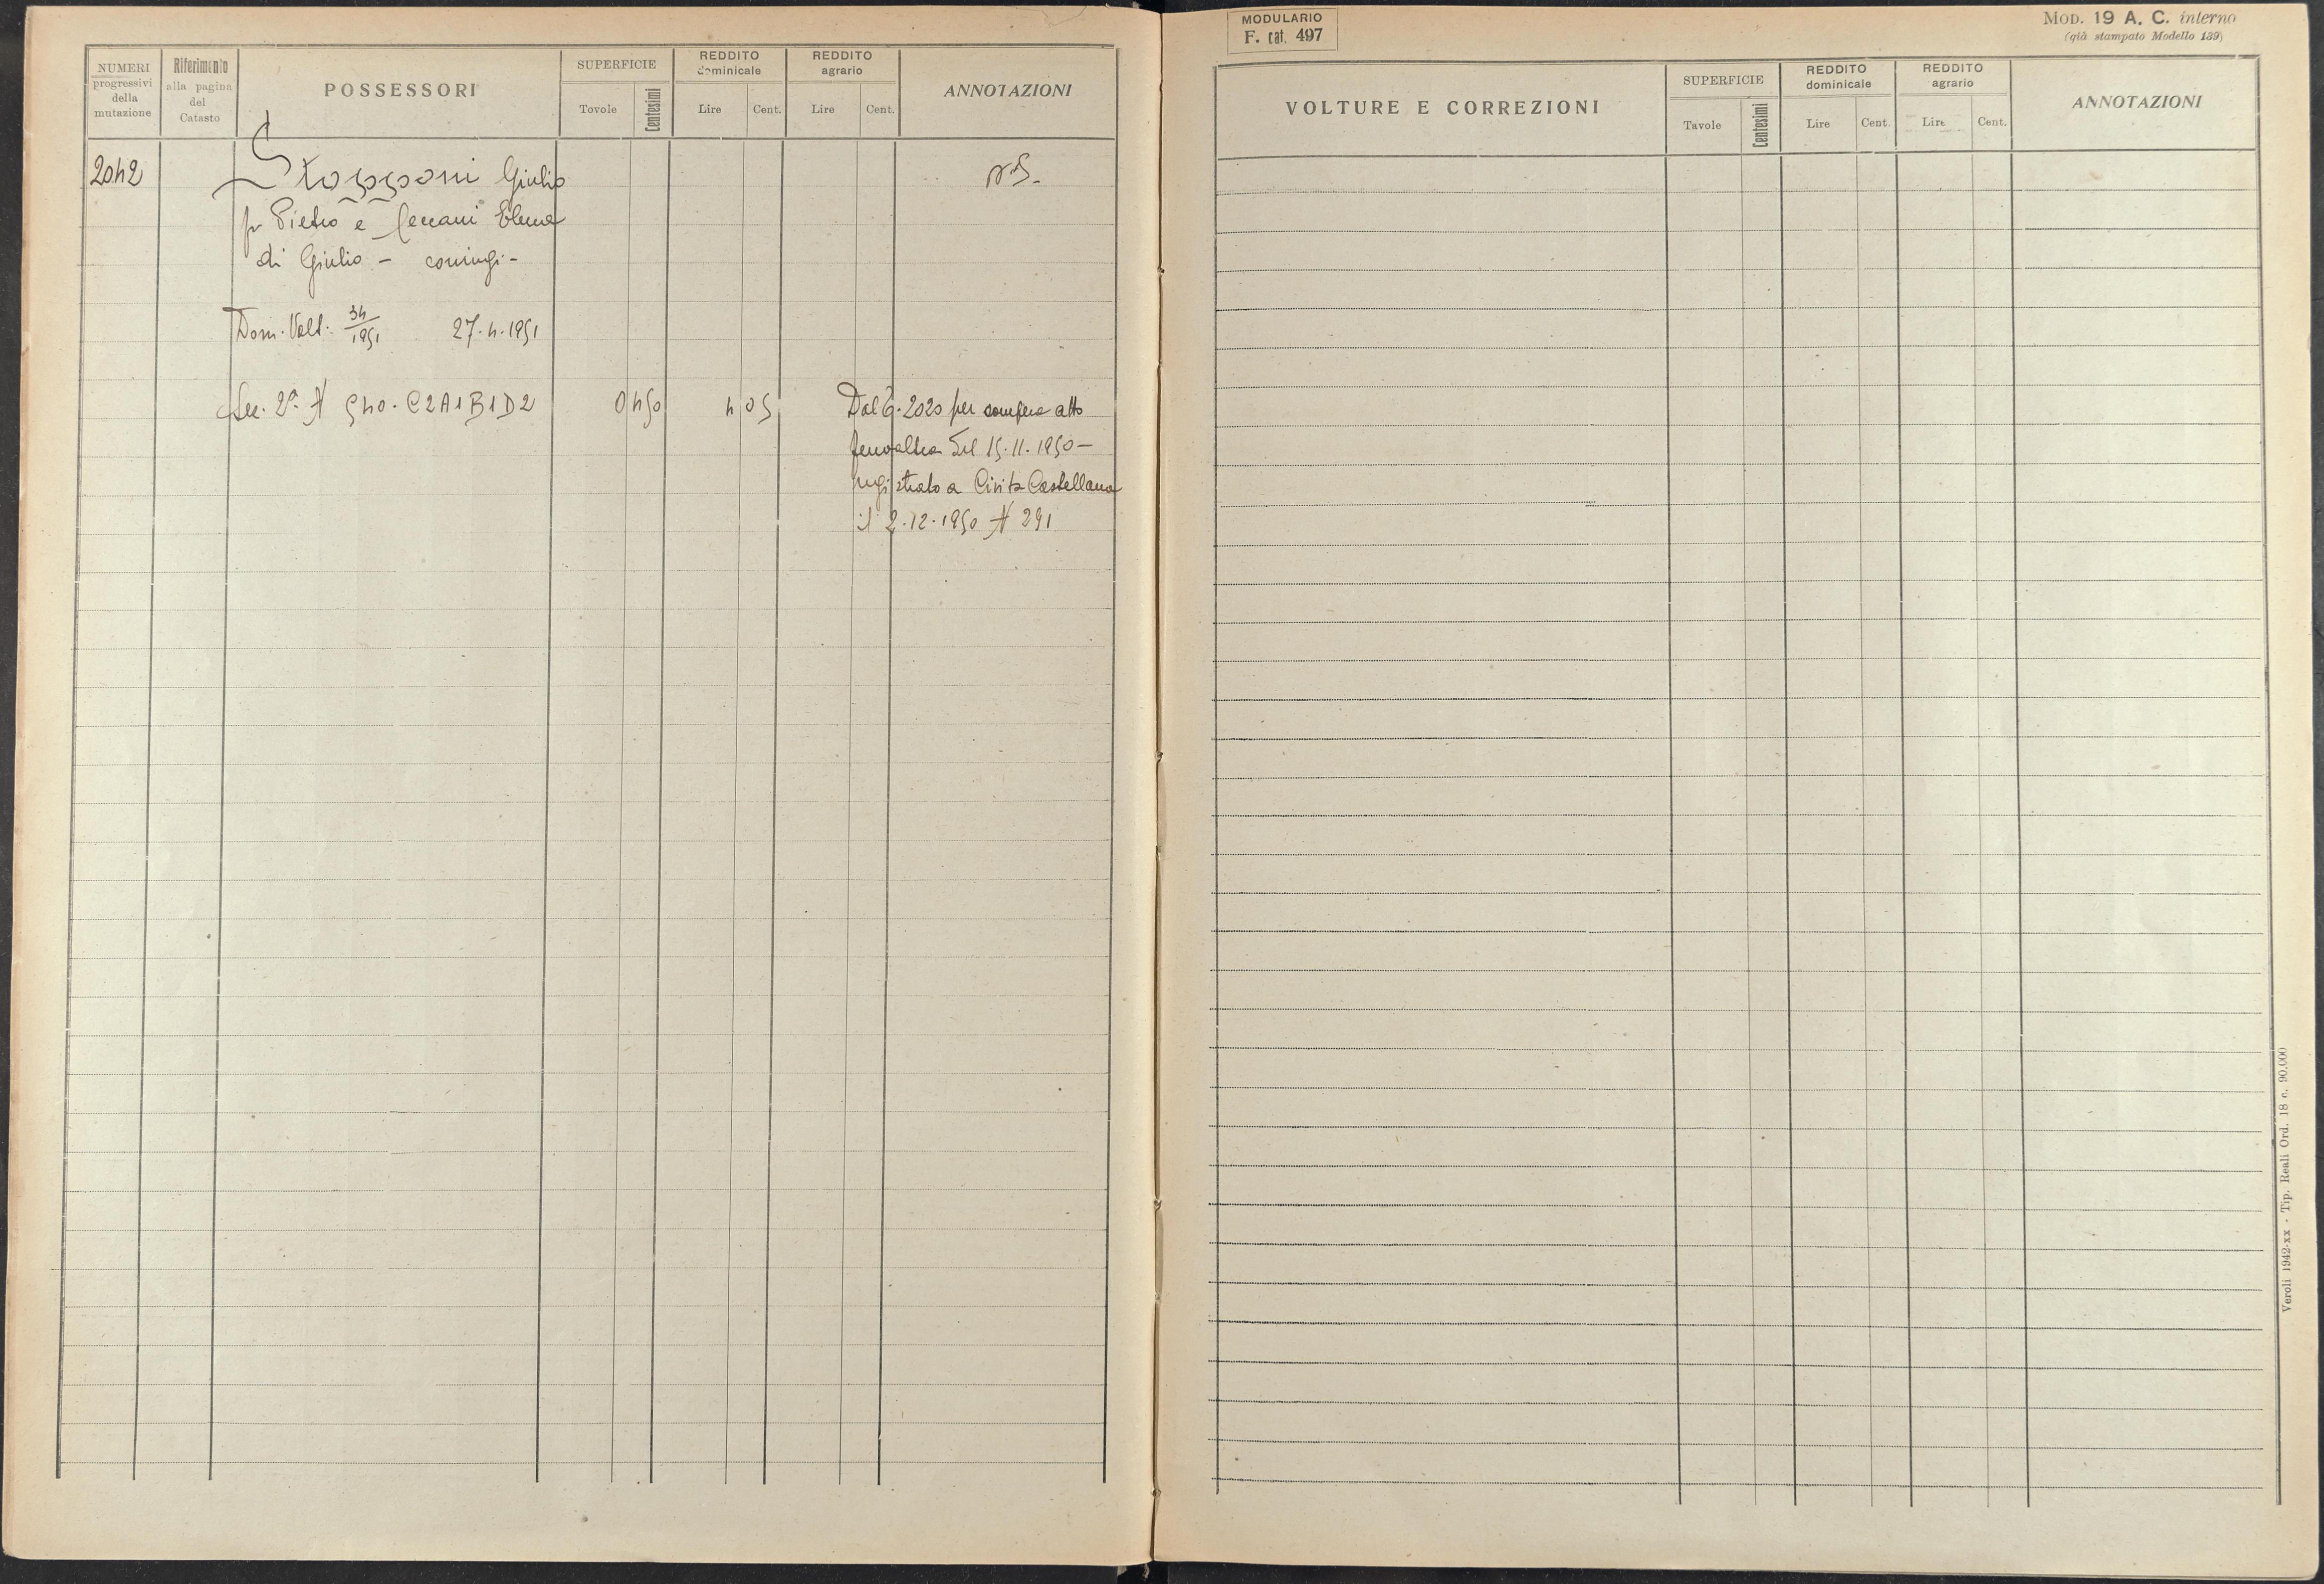 NUMERI progressivi della mutazione
Riferimento alla pagina del Catasto
POSSESSORI
SUPERFICIE
Tovole
Centesimi
REDDITO dominicale
Lire
Cent.
REDDITO agrario
Lire
Cent.
ANNOTAZIONI
2042
Stopponi Giulio
fu Pietro e Ceccani Elena
di Giulio - coniugi -
Dom. Volt. 34/1951 27.4.1951
Sez. 2ª N 540. C2A1B1D2 0 450 4 05
Dal C. 2020 per compra atto
del 15.11.1950 -
registrato a Civita Castellana
il 2.12.1950 N 291
MODULARIO
F. cat. 497
MOD. 19 A. C. interno
(già stampato Modello 139)
VOLTURE E CORREZIONI
SUPERFICIE
Tavole
Centesimi
REDDITO dominicale
Lire
Cent.
REDDITO agrario
Lire
Cent.
ANNOTAZIONI
Veroli 1942-xx - Tip. Reali Ord. 18 c. 90,000